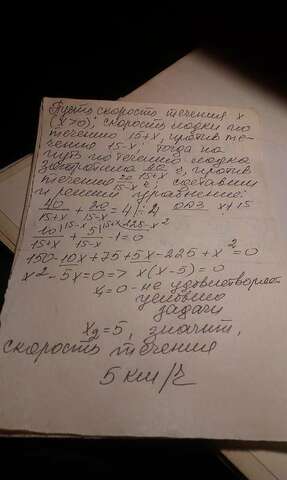 Пусть скорость течения x
(x>0); скорость лодки по
течению 15+x, против те-
чения 15-x, тогда на
путь по течению лодка
затратила 40/15+x ч, против
течения 20/15-x ч, составим
и решим уравнение:
40/15+x + 20/15-x = 4 |:4 ОДЗ x≠15
10^15-x/15+x + 5^15+x/15-x - 1^225-x² = 0
150-10x+75+5x-225+x²=0
x²-5x=0 => x(x-5)=0
x₁=0 - не удовлетворяет
условию
задачи
x₂=5, значит,
скорость течения
5 км/ч